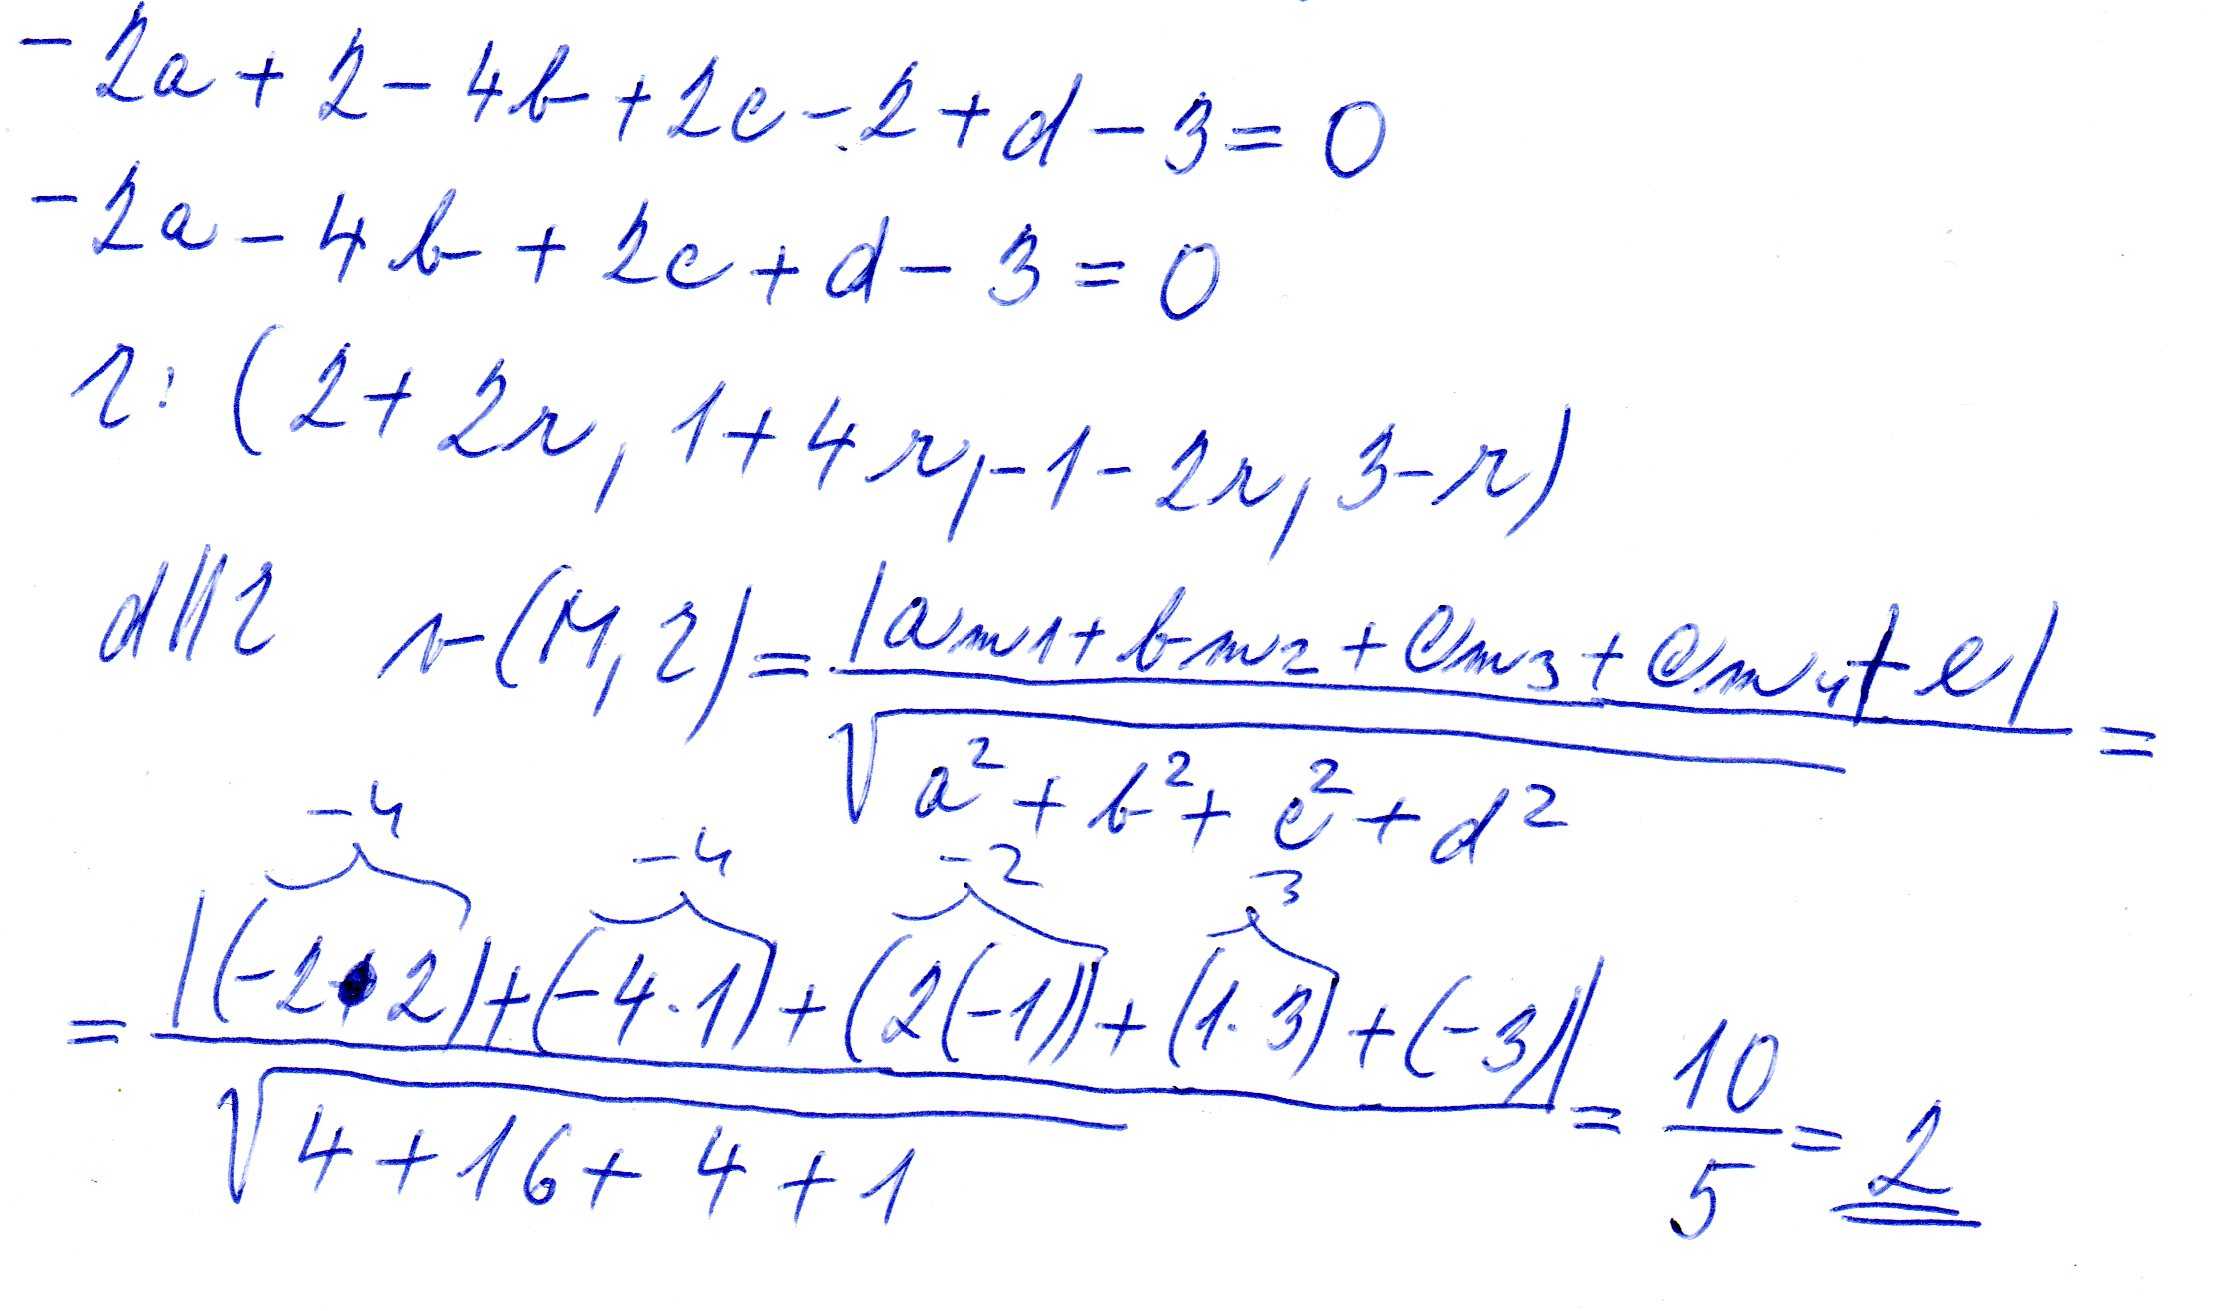 -2a + 2 - 4b + 2c - 2 + d - 3 = 0
-2a - 4b + 2c + d - 3 = 0
r: (2 + 2r, 1 + 4r, -1 - 2r, 3 - r)
d || r v(M, r) = |am1 + bm2 + cm3 + cm4 + e| / √(a² + b² + c² + d²) =
-4 -4 -2 3
= |(-2·2) + (-4·1) + (2(-1)) + (1·3) + (-3)| / √(4 + 16 + 4 + 1) = 10/5 = 2